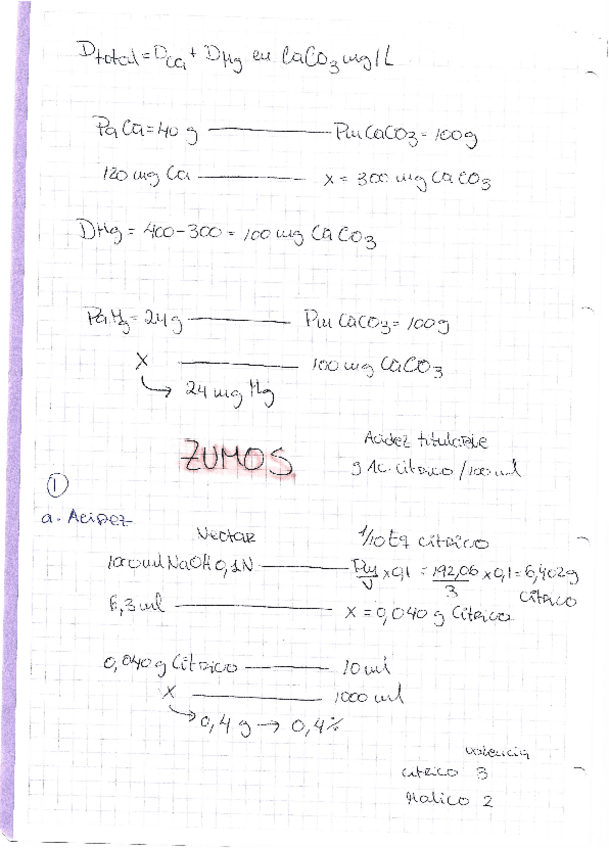 Dtotal = DCa + DMg en CaCO3 mg/L
Pa Ca = 40 g ——— Pm CaCO3 = 100g
120 mg Ca ——— x = 300 mg CaCO3
DMg = 400-300 = 100 mg CaCO3
Pa Mg = 24g ——— Pm CaCO3 = 100g
X ——— 100 mg CaCO3
↳ 24 mg Mg
Acidez titulable
ZUMOS
g Ac. cítrico /100 ml
①
a. Acidez
Nectar 1/10 Eq cítrico
1000 ml NaOH 0,1N ——— Pm/v x 0,1 = 192,06/3 x 0,1 = 6,402g
Cítrico
6,3 ml ——— x = 0,040 g Cítrico
0,040 g Cítrico ——— 10 ml
X ——— 1000 ml
↳ 0,4 g → 0,4%
valencia
cítrico 3
Málico 2